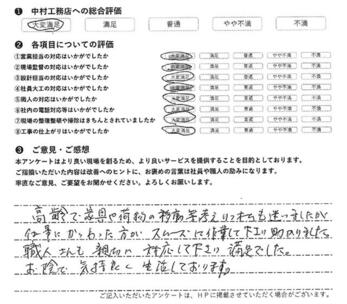 ❶ 中村工務店への総合評価
大変満足 満足 普通 やや不満 不満
❷ 各項目についての評価
①営業担当の対応はいかがでしたか 大変満足 満足 普通 やや不満 不満
②現場監督の対応はいかがでしたか 大変満足 満足 普通 やや不満 不満
③設計担当の対応はいかがでしたか 大変満足 満足 普通 やや不満 不満
④社員大工の対応はいかがでしたか 大変満足 満足 普通 やや不満 不満
⑤職人の対応はいかがでしたか 大変満足 満足 普通 やや不満 不満
⑥社内の電話対応等はいかがでしたか 大変満足 満足 普通 やや不満 不満
⑦現場の整理整頓や掃除はきちんとされていましたか 大変満足 満足 普通 やや不満 不満
⑧工事の仕上がりはいかがでしたか 大変満足 満足 普通 やや不満 不満
❸ ご意見・ご感想
本アンケートはより良い現場を創るため、より良いサービスを提供することを目的としております。
ご指摘いただいた内容は改善へのヒントに、お褒めの言葉は社員や職人の励みになります。
率直なご意見、ご要望をお聞かせください。よろしくお願いします。
高齢で家具や荷物の移動等考えりとても迷いましたが
仕事にかかわった方がスムーズに作業して下さり助かりました。
職人さんも親切に対応して下さり満足でした。
お陰で気持良く生活しております。
ご記入いただいたアンケートは、HPに掲載させていただく場合がございます。